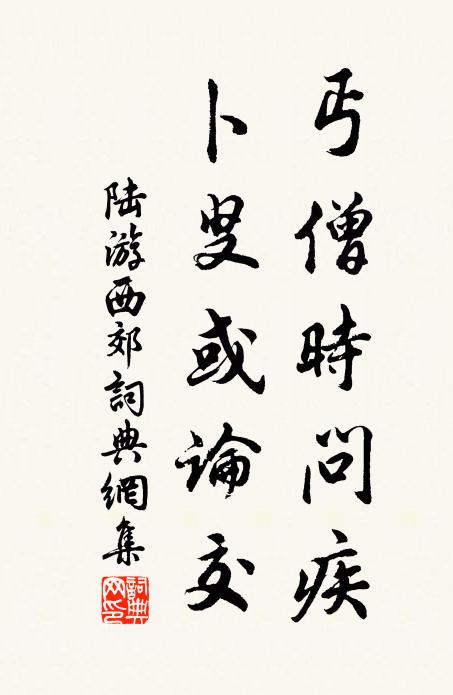 丐僧時問疾
卜叟或論交
陸游西郊詞典網集
詞典網印